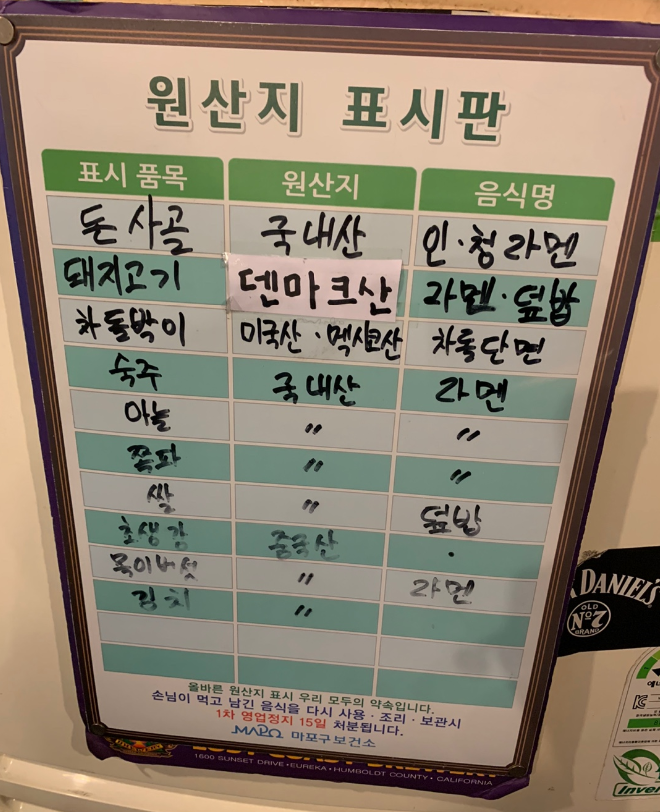 원산지 표시판
표시 품목 원산지 음식명
돈 사골 국내산 인·청라멘
돼지고기 덴마크산 라멘·덮밥
차돌박이 미국산·멕시코산 차돌단면
숙주 국내산 라멘
마늘 〃 〃
쪽파 〃 〃
쌀 〃 덮밥
초생강 중국산 ·
목이버섯 〃 라멘
김치 〃
올바른 원산지 표시 우리 모두의 약속입니다.
손님이 먹고 남긴 음식을 다시 사용·조리·보관시
1차 영업정지 15일 처분됩니다.
MAPO 마포구보건소
LOST COAST BREWERY
1600 SUNSET DRIVE • EUREKA • HUMBOLDT COUNTY • CALIFORNIA
DANIEL'S
OLD
No 7
BRAND
Inver